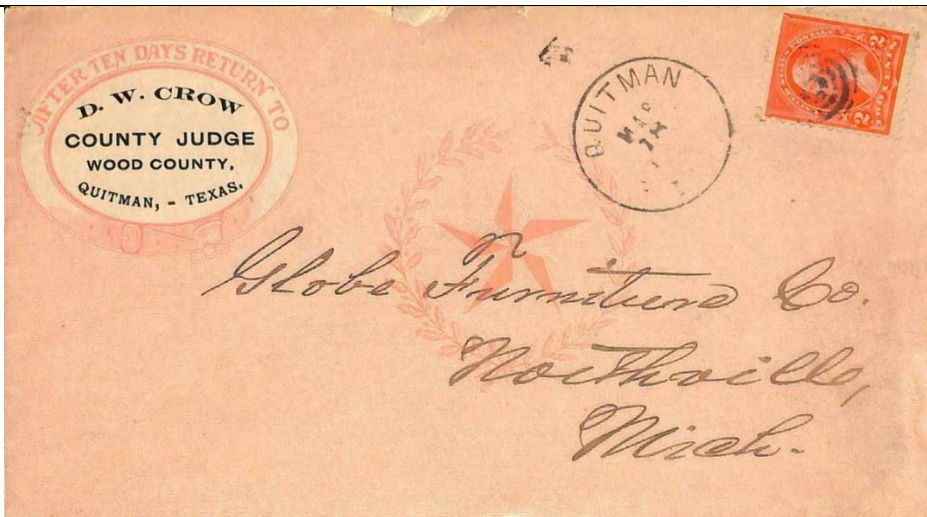 AFTER TEN DAYS RETURN TO
D. W. CROW
COUNTY JUDGE
WOOD COUNTY,
QUITMAN, - TEXAS.
QUITMAN
MAR
POSTAGE
2 2
TWO CENTS
Globe Furniture Co.
Northville,
Mich.